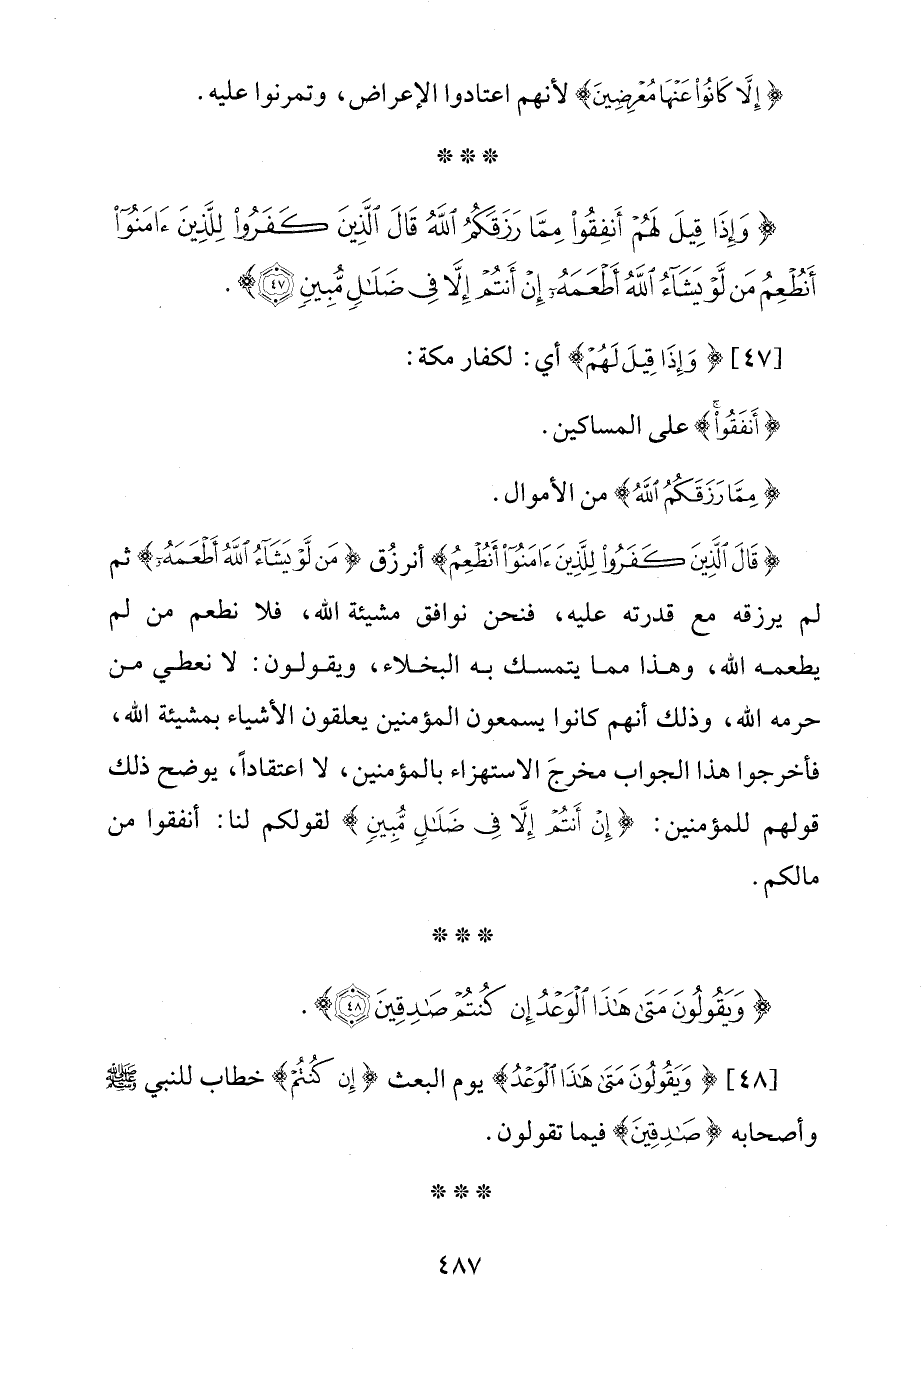 ﴿إِلَّا كَانُوا۟ عَنْهَا مُعْرِضِينَ﴾ لأنهم اعتادوا الإعراض، وتمرنوا عليه.
* * *
﴿وَإِذَا قِيلَ لَهُمْ أَنفِقُوا۟ مِمَّا رَزَقَكُمُ ٱللَّهُ قَالَ ٱلَّذِينَ كَفَرُوا۟ لِلَّذِينَ ءَامَنُوٓا۟
أَنُطْعِمُ مَن لَّوْ يَشَآءُ ٱللَّهُ أَطْعَمَهُۥٓ إِنْ أَنتُمْ إِلَّا فِى ضَلَـٰلٍ مُّبِينٍ ٤٧﴾.
[٤٧] ﴿وَإِذَا قِيلَ لَهُمْ﴾ أي: لكفار مكة:
﴿أَنفَقُوا۟ۚ﴾ على المساكين.
﴿مِمَّا رَزَقَكُمُ ٱللَّهُ﴾ من الأموال.
﴿قَالَ ٱلَّذِينَ كَفَرُوا۟ لِلَّذِينَ ءَامَنُوٓا۟ أَنُطْعِمُ﴾ أنرزُق ﴿مَن لَّوْ يَشَآءُ ٱللَّهُ أَطْعَمَهُۥٓ﴾ ثم
لم يرزقه مع قدرته عليه، فنحن نوافق مشيئة الله، فلا نطعم من لم
يطعمه الله، وهذا مما يتمسك به البخلاء، ويقولون: لا نعطي من
حرمه الله، وذلك أنهم كانوا يسمعون المؤمنين يعلقون الأشياء بمشيئة الله،
فأخرجوا هذا الجواب مخرجَ الاستهزاء بالمؤمنين، لا اعتقاداً، يوضح ذلك
قولهم للمؤمنين: ﴿إِنْ أَنتُمْ إِلَّا فِى ضَلَـٰلٍ مُّبِينٍ﴾ لقولكم لنا: أنفقوا من
مالكم.
* * *
﴿وَيَقُولُونَ مَتَىٰ هَـٰذَا ٱلْوَعْدُ إِن كُنتُمْ صَـٰدِقِينَ ٤٨﴾.
[٤٨] ﴿وَيَقُولُونَ مَتَىٰ هَـٰذَا ٱلْوَعْدُ﴾ يوم البعث ﴿إِن كُنتُمْ﴾ خطاب للنبي ﷺ
وأصحابه ﴿صَـٰدِقِينَ﴾ فيما تقولون.
* * *
٤٨٧